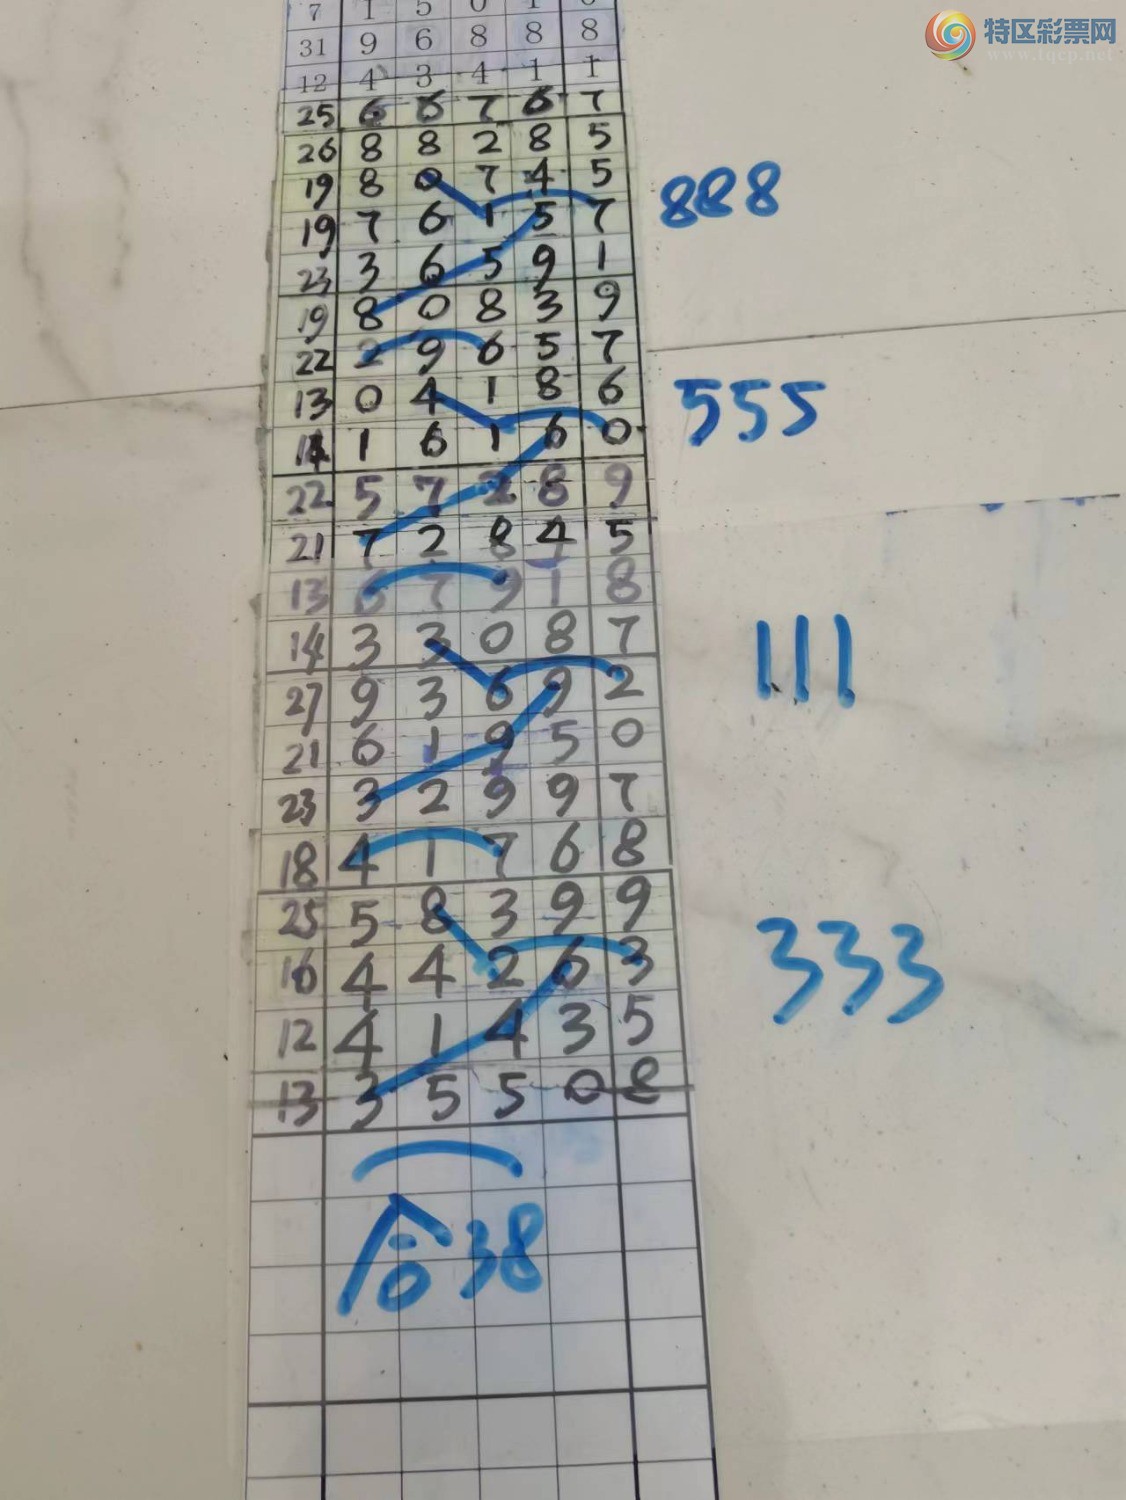 特区彩票网
www.tqcp.net
7 1 5 0 1
31 9 6 8 8 8
12 4 3 4 1 1
25 6 6 7 6 7
26 8 8 2 8 5
19 8 0 7 4 5
888
19 7 6 1 5 7
23 3 6 5 9 1
19 8 0 8 3 9
22 2 9 6 5 7
13 0 4 1 8 6
555
14 1 6 1 6 0
22 5 7 2 8 9
21 7 2 8 4 5
13 6 7 9 1 8
14 3 3 0 8 7
111
27 9 3 6 9 2
21 6 1 9 5 0
23 3 2 9 9 7
18 4 1 7 6 8
25 5 8 3 9 9
16 4 4 2 6 3
333
12 4 1 4 3 5
13 3 5 5 0 8
合38